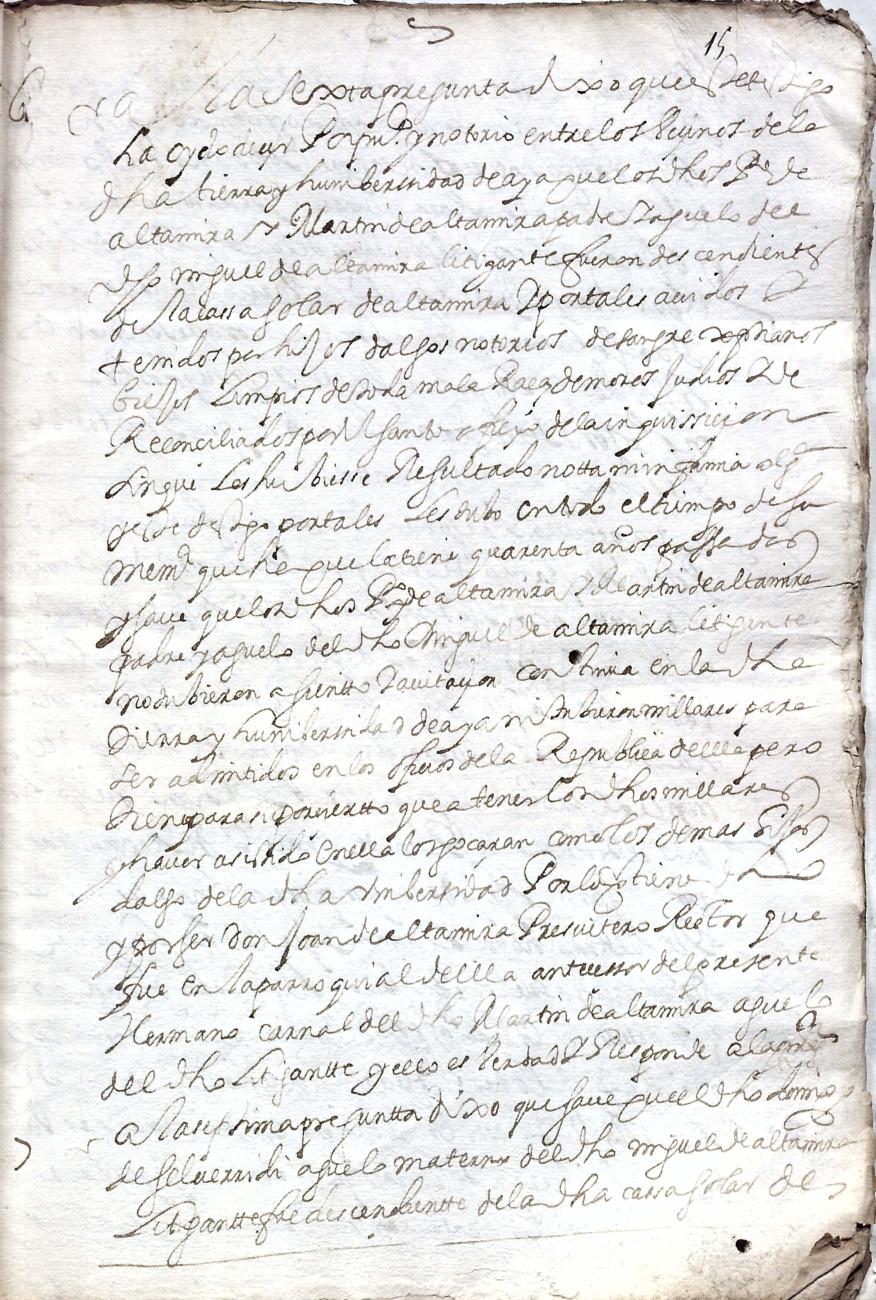 15
6 A la Sexta pregunta dixo que este testigo
ha oydo decir Por pu.co y notorio entre los Vecinos de la
dha tierra y huniberssidad de aya que los dhos P.º de
altamira y Martin de altamira padre y aguelo del
dho miguel de altamira litigante fueron descendientes
de la cassa solar de altamira y portales avidos y
tenidos por hijos dalgo notorios de sangre xpstianos
biejos Limpios de toda mala Raça de moros Judios y de
Reconciliados por el santo officio de la inquissicion
sin que Les hubiesse Resultado notta ni infamia
y este testigo por tales Les tubo en todo el tiempo de su
mem.ª que he que la tiene quarenta años passados
y save que los dhos P.º de altamira y Martin de altamira
padre y aguelo del dho Miguel de altamira litigante
no tubieron asientto y avitaçion continua en la dha
tierra y huniberssidad de aya ni tubieron millares para
ser admitidos en los officios de la Republica della pero
tiene para si por ciertto que a tener los dhos millares
y haver asistido en ella los goçaran como los demas hijos
dalgo de la dha vnibersidad Por lo que tiene dho
y por ser Don Joan de altamira Presvitero Rector que
fue en la parroquial della antecessor del presente
Hermano carnal del dho Martin de altamira aguelo
del dho Litigantte y ello es Verdad y Responde a la preg.ta
a la septima preguntta dixo que save que el dho domingo
de Echverridi aguelo materno del dho miguel de altamira
Litigantte fue descendientte de la dha cassa solar de